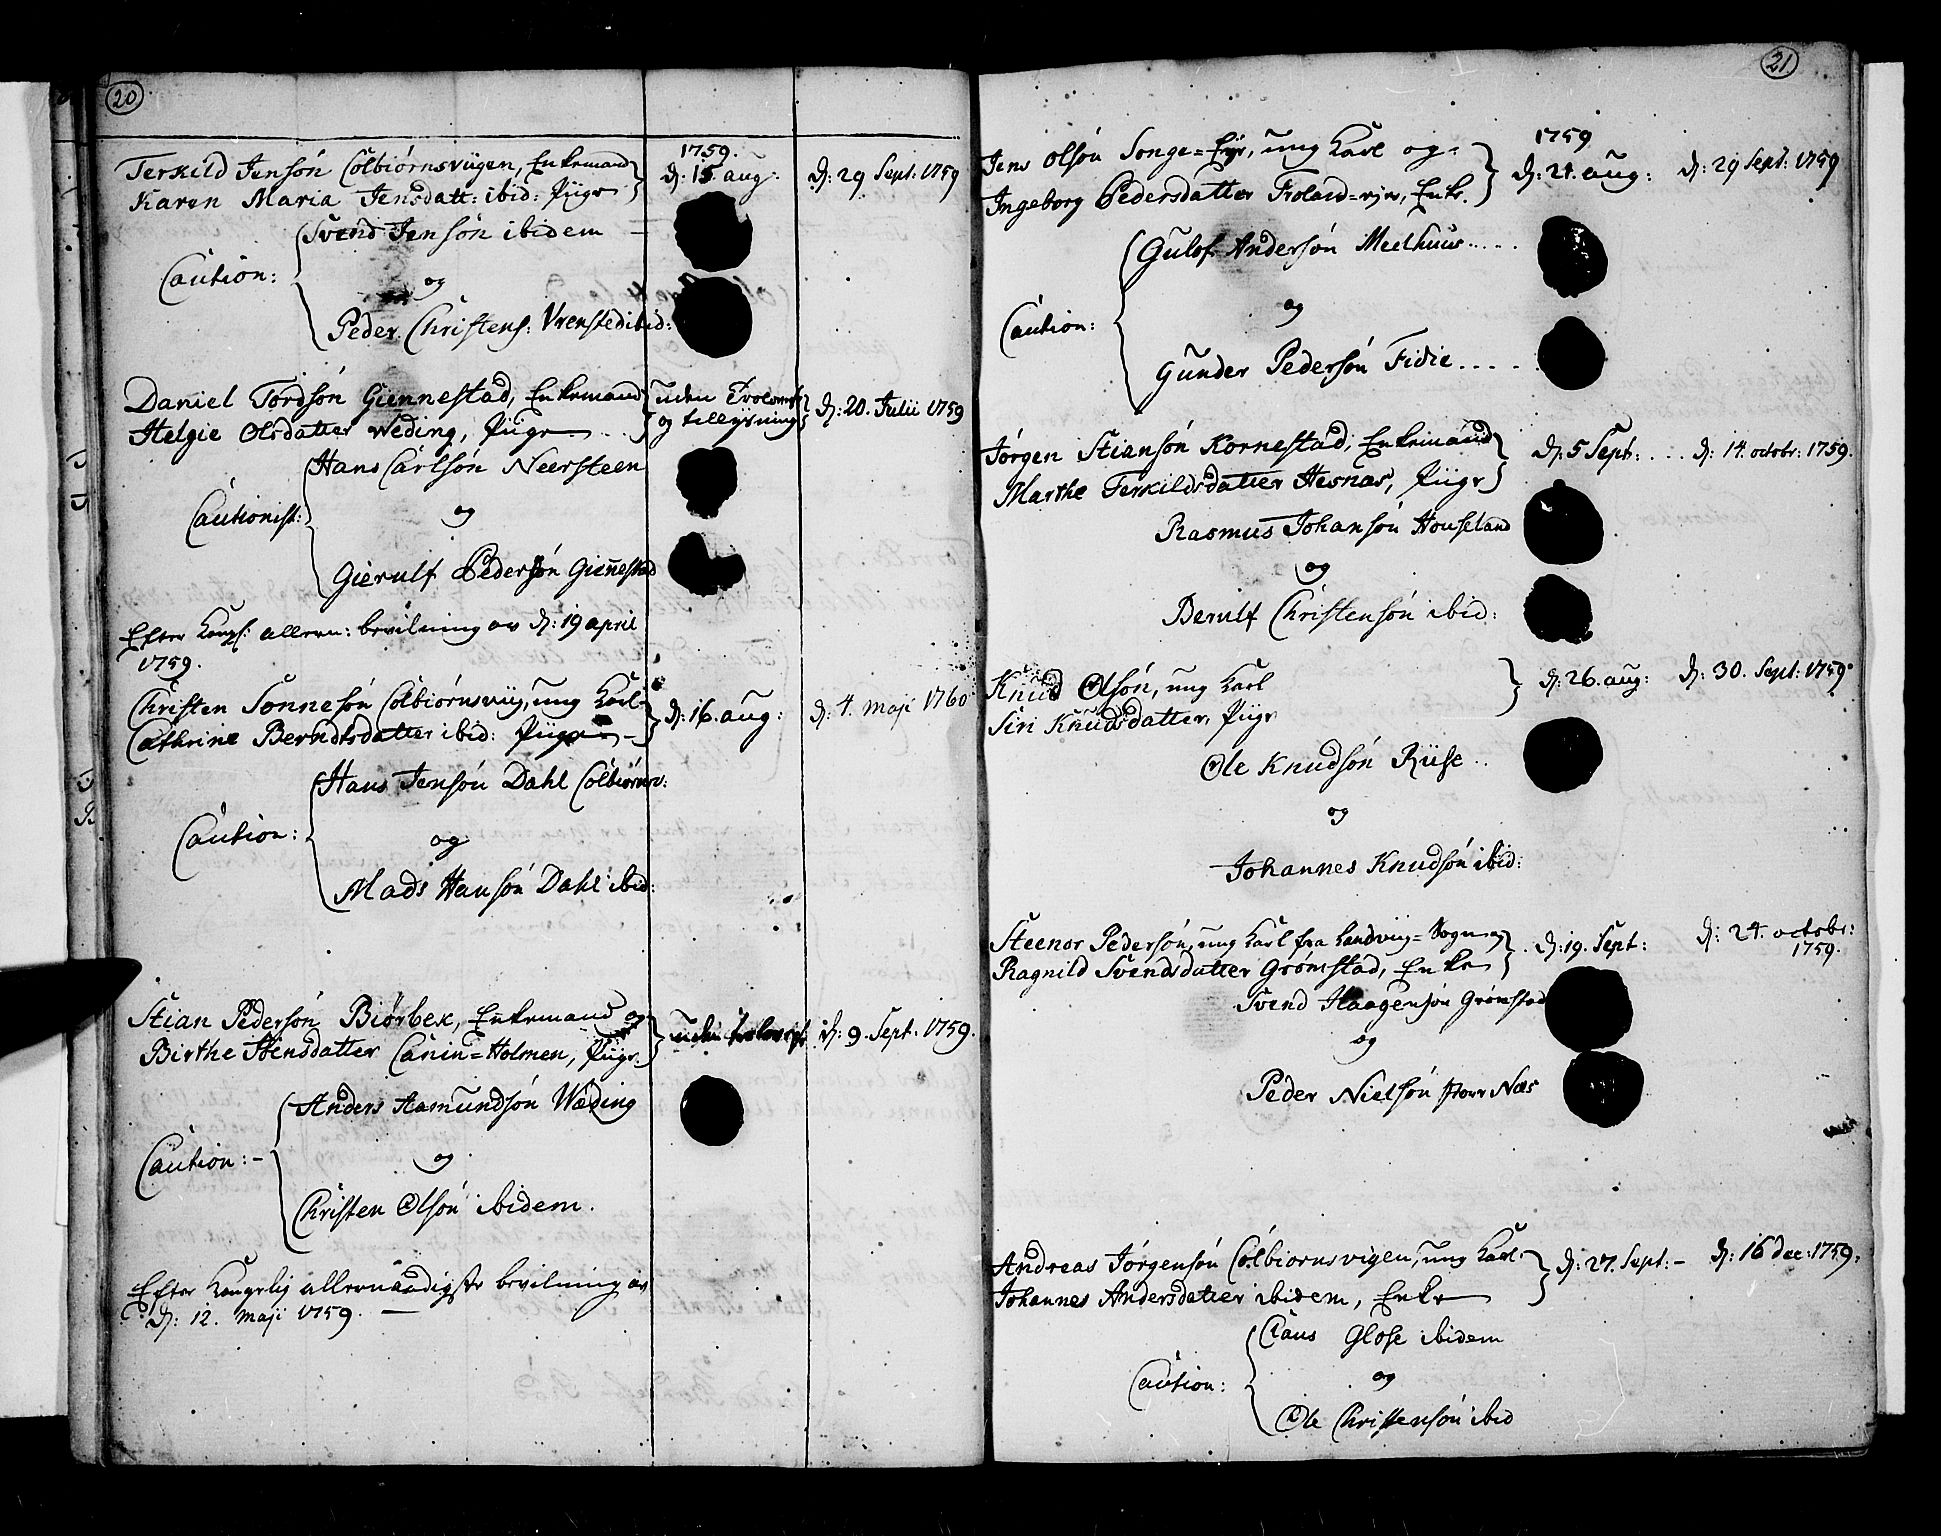 20
1759.
Terkild Jensøn Colbiørnsviigen, Enkemand
Karen Maria Jensdatt: ibid: Piige
d: 15. aug: d: 29 Sept: 1759
Svend Jensøn ibidem
Caution:
og
Peder Christens: Vrensted ibid:
Daniel Tordsøn Giennestad, Enkemand
Helgie Olsdatter Weding, Piige
uden Trolovelse
og tillysning
d: 20. Julii 1759
Hans Carlsøn Neersteen
Cautionist:
og
Gierulf Pedersøn Giennestad
Efter Kongl: allern: bevilning av d: 19 april
1759.
Christen Sonnesøn Colbiørnsviig, ung Karl
Cathrine Berndtsdatter ibid: Piige
d: 16. aug: d: 4. maji 1760
Hans Jensøn Dahl Colbiørnsv:
Caution:
og
Mads Hansøn Dahl ibid:
Stian Pedersøn Biørbek, Enkemand og
Birthe Stensdatter Canin=Holmen, Piige
uden d: 9. Sept: 1759.
Anders Aamundsøn Wæding
Caution:
og
Christen Olsøn ibidem.
Efter Kongelig allernaadigste bevilning av
d: 12. maji 1759.
21
1759
Jens Olsøn Songe=Eyr, ung Karl og
Ingeborg Pedersdatter Froland=, Enke.
d: 24. aug: d: 29 Sept: 1759
Gulof Andersøn Meelhuus
og
Caution:
Gunder Pedersøn Fidie
Jørgen Stiansøn Kornestad, Enkemand
Marthe Terkildsdatter Hesnæs, Piige
d: 5 Sept: d: 14. octobr: 1759.
Rasmus Johansøn Houseland
og
Berulf Christensøn ibid:
Knud Olsøn, ung Karl
Siri Knudsdatter, Piige
d: 26. aug: d: 30. Sept: 1759
Ole Knudsøn Riise
og
Johannes Knudsøn ibid:
Steenor Pedersøn, ung Karl fra Landviig=Sogn og
Ragnild Svendsdatter Grømstad, Enke
d: 19. Sept: d: 24. octobr:
1759.
Svend Haagensøn Grømstad
og
Peder Nielsøn Næs
Andreas Jørgensøn Colbiornsvigen, ung Karl
Johannes Andersdatter ibidem, Enke
d: 27. Sept: d: 16 dec: 1759.
Claus Glose ibidem
Caution:
og
Ole Christensøn ibid